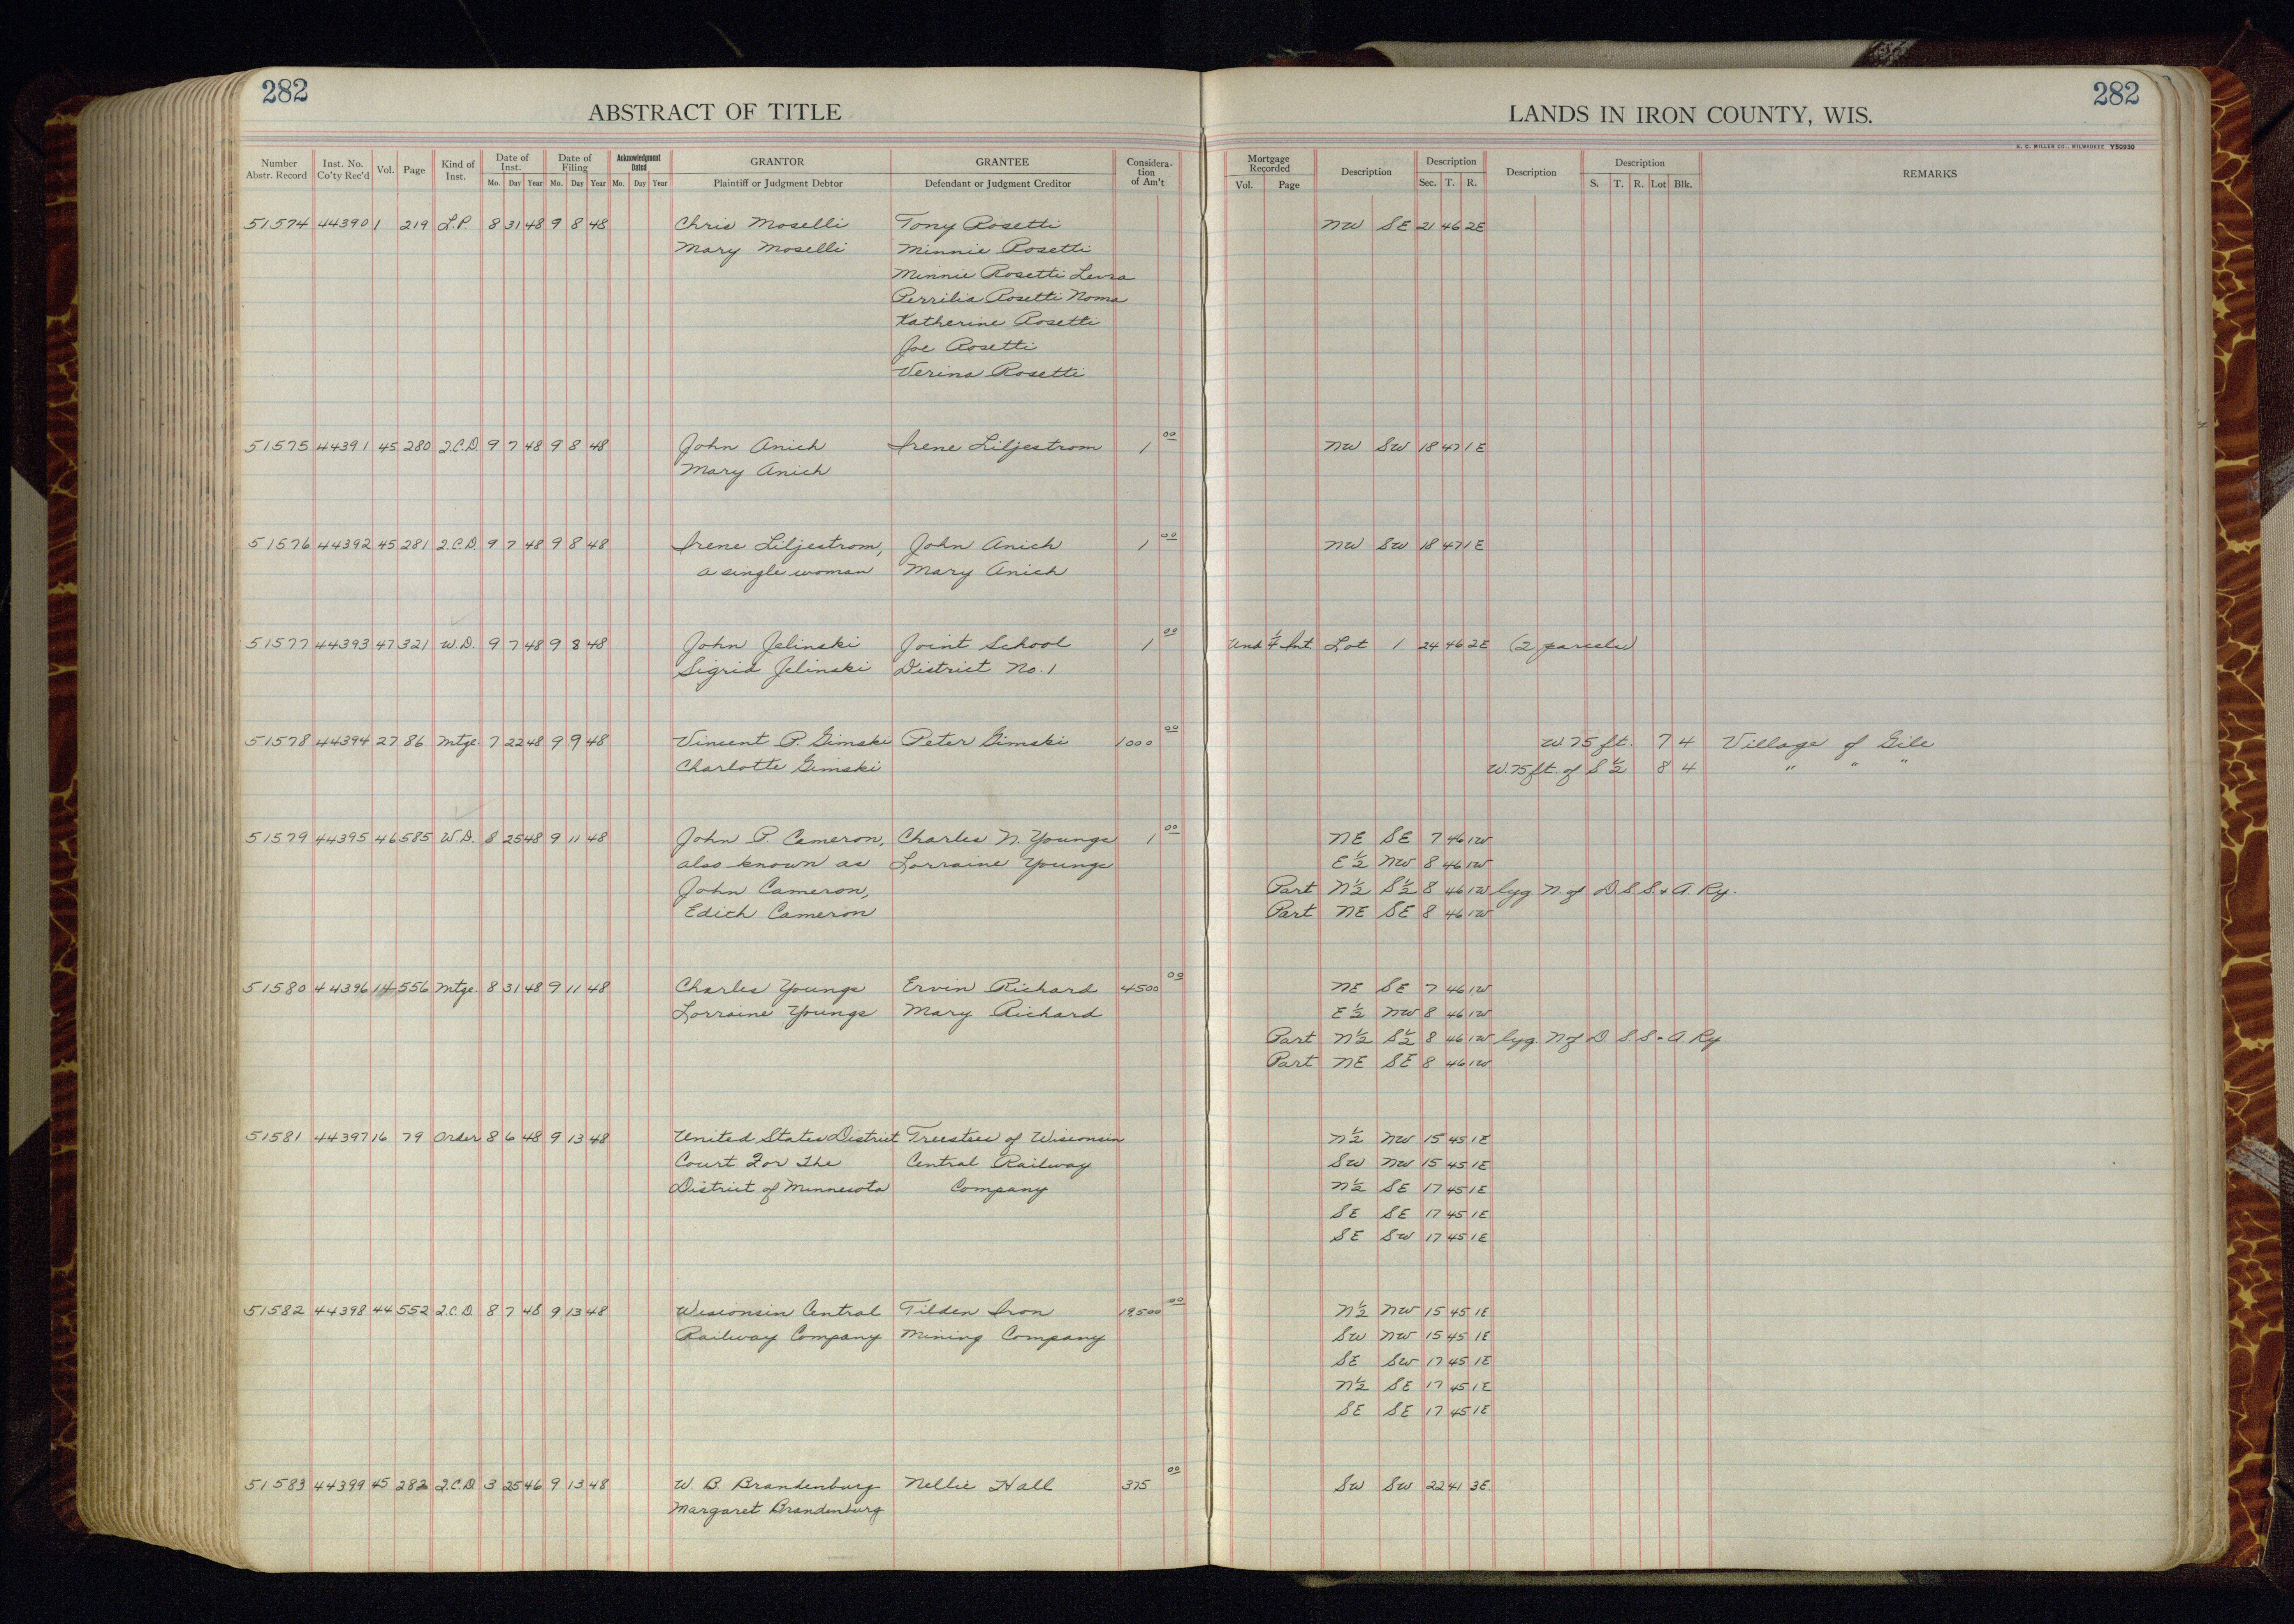 282
ABSTRACT OF TITLE
LANDS IN IRON COUNTY, WIS.
282
H. C. MILLER CO., MILWAUKEE Y50930
Number Abstr. Record | Inst. No. Co'ty Rec'd | Vol. | Page | Kind of Inst. | Date of Inst. Mo. Day Year | Date of Filing Mo. Day Year | Acknowledgment Dated Mo. Day Year | GRANTOR Plaintiff or Judgment Debtor | GRANTEE Defendant or Judgment Creditor | Considera- tion of Am't | Mortgage Recorded Vol. Page | Description | Description Sec. T. R. | Description | Description S. T. R. Lot Blk. | REMARKS
51574 44390 1 219 L.P. 8 31 48 9 8 48 Chris Moselli Tony Rosetti NW SE 21 46 2E
Mary Moselli Minnie Rosetti
Minnie Rosetti
Rosetti Noma
Katherine Rosetti
Joe Rosetti
Verina Rosetti
51575 44391 45 280 2.C.D. 9 7 48 9 8 48 John Anich Irene Liljestrom 1 00 NW SW 18 47 1E
Mary Anich
51576 44392 45 281 2.C.D. 9 7 48 9 8 48 Irene Liljestrom, John Anich 1 00 NW SW 18 47 1E
a single woman Mary Anich
51577 44393 47 321 W.D. 9 7 48 9 8 48 John Jelinski Joint School 1 00 Und ¼ Int Lot 1 24 46 2E (2 parcels)
Sigrid Jelinski District No. 1
51578 44394 27 86 Mtge. 7 22 48 9 9 48 Vincent P. Gimski Peter Gimski 1000 00 W. 75 ft. 7 4 Village of Gile
Charlotte Gimski W. 75 ft. of S ½ 8 4 " " "
51579 44395 46 585 W.D. 8 25 48 9 11 48 John P. Cameron, Charles N. Youngs 1 00 NE SE 7 46 1W
also known as Lorraine Youngs E ½ NW 8 46 1W
John Cameron, Part N ½ S ½ 8 46 1W lyg. N. of D. S. S. & A. Ry.
Edith Cameron Part NE SE 8 46 1W
51580 44396 14 556 Mtge. 8 31 48 9 11 48 Charles Youngs Ervin Richard 4500 00 NE SE 7 46 1W
Lorraine Youngs Mary Richard E ½ NW 8 46 1W
Part N ½ S ½ 8 46 1W lyg. N of D. S. S. & A. Ry.
Part NE SE 8 46 1W
51581 44397 16 79 Order 8 6 48 9 13 48 United States District Trustees of Wisconsin N ½ NW 15 45 1E
Court For the Central Railway SW NW 15 45 1E
District of Minnesota Company N ½ SE 17 45 1E
SE SE 17 45 1E
SE SW 17 45 1E
51582 44398 44 552 2.C.D. 8 7 48 9 13 48 Wisconsin Central Tilden Iron 19,500 00 N ½ NW 15 45 1E
Railway Company Mining Company SW NW 15 45 1E
SE SW 17 45 1E
N ½ SE 17 45 1E
SE SE 17 45 1E
51583 44399 45 282 2.C.D. 3 25 46 9 13 48 W. B. Brandenburg Nellie Hall 375 00 SW SW 22 41 3E
Margaret Brandenburg